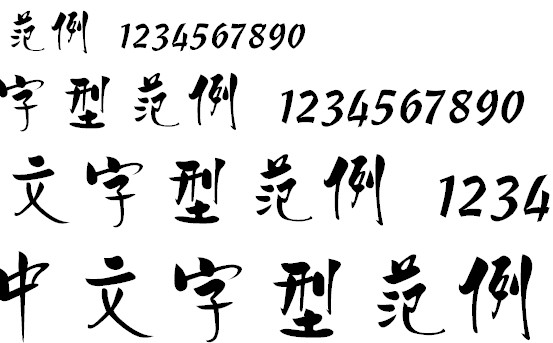 范例 1234567890
字型范例 1234567890
文字型范例 1234
中文字型范例